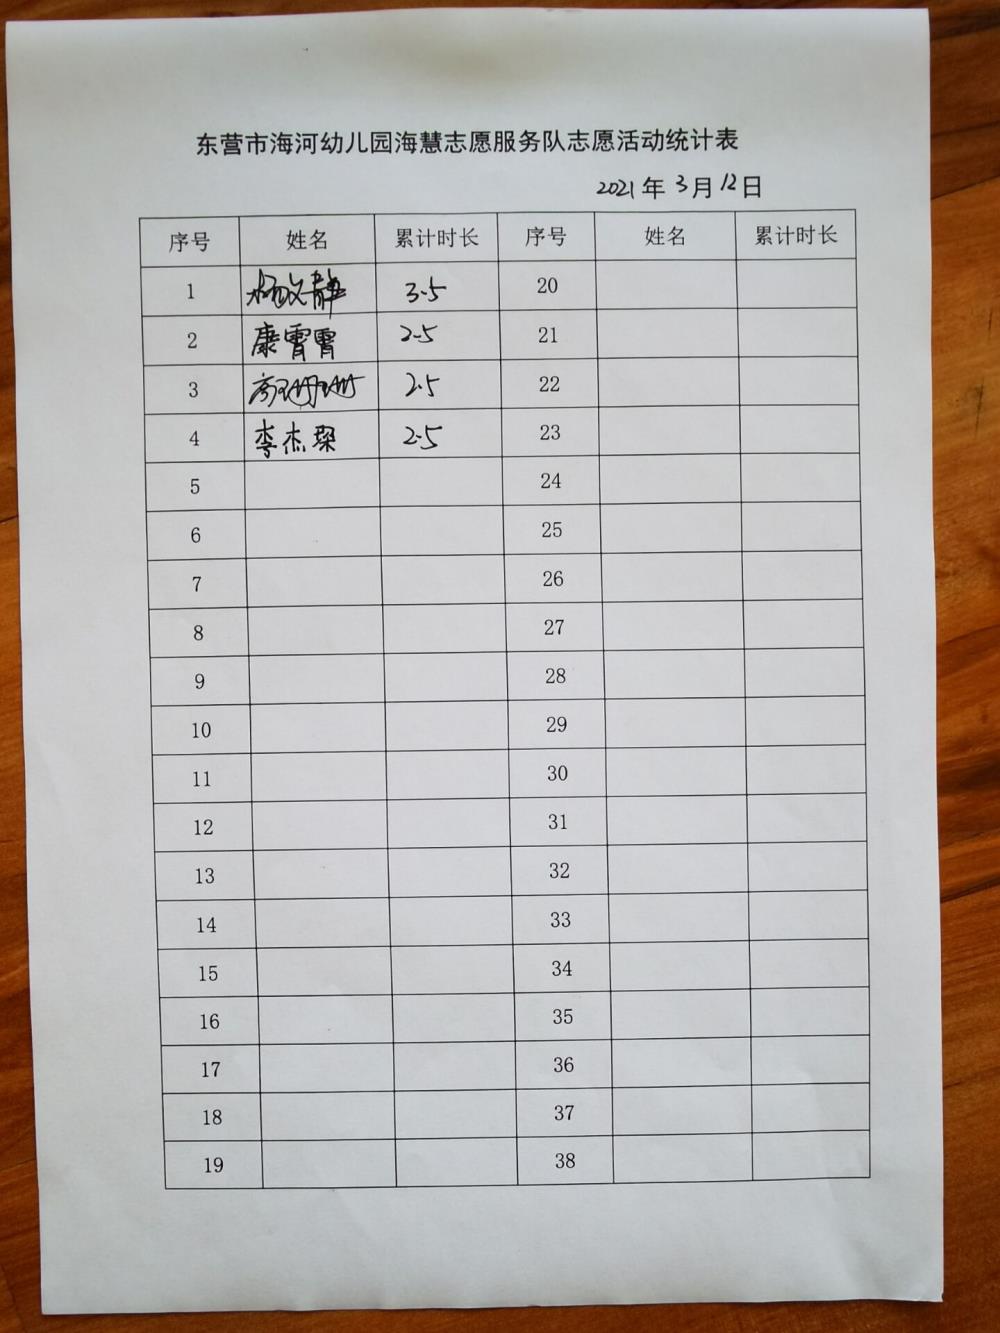 东营市海河幼儿园海慧志愿服务队志愿活动统计表
2021年3月12日
序号 姓名 累计时长 序号 姓名 累计时长
1 杨文静 3.5 20
2 康霄霄 2.5 21
3 高珊珊 2.5 22
4 李杰琛 2.5 23
5 24
6 25
7 26
8 27
9 28
10 29
11 30
12 31
13 32
14 33
15 34
16 35
17 36
18 37
19 38